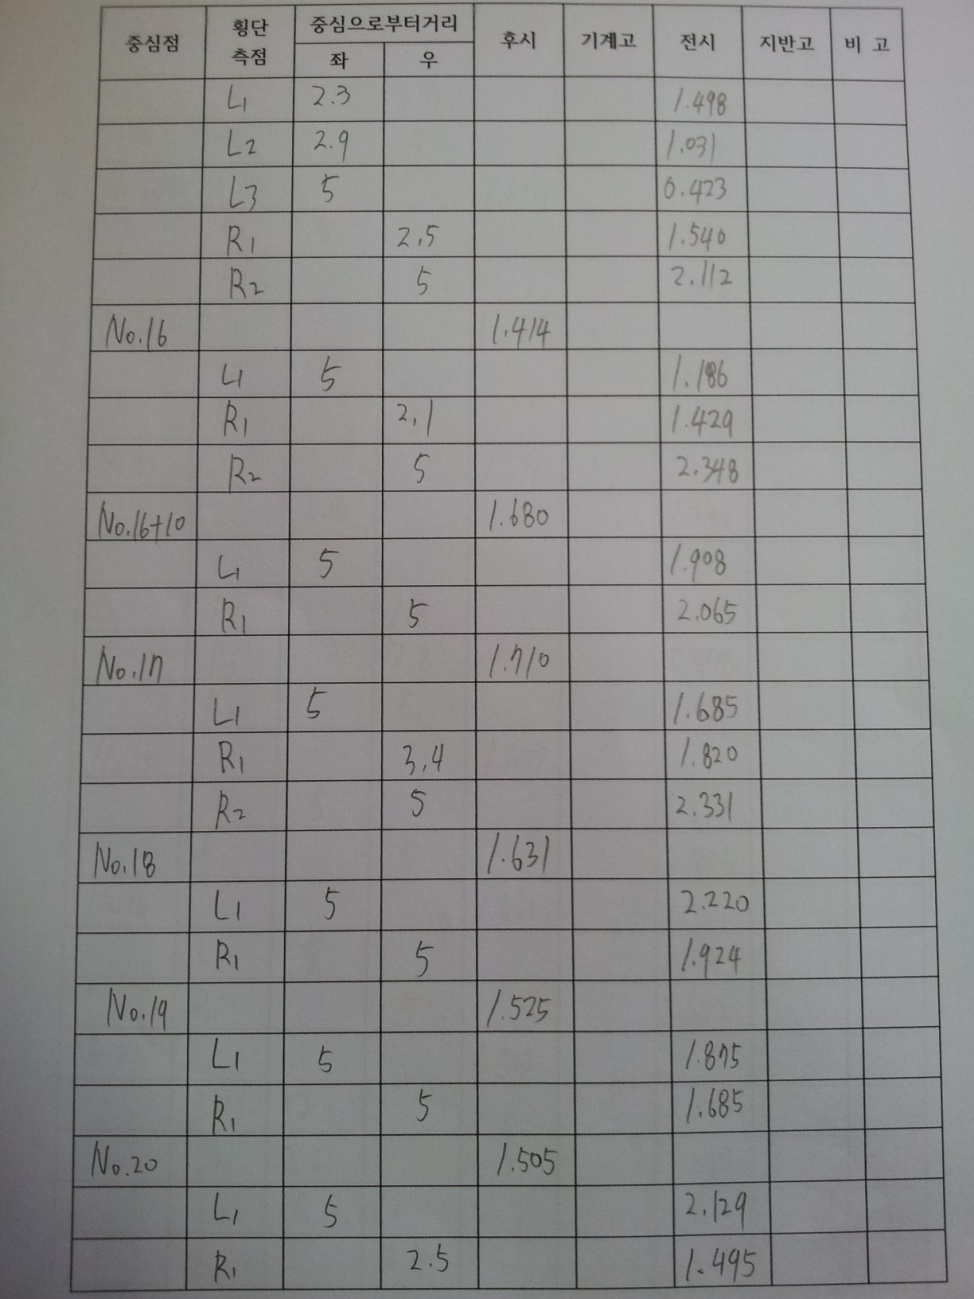 중심점 횡단측점 중심으로부터거리 후시 기계고 전시 지반고 비 고
좌 우
L1 2.3 1.498
L2 2.9 1.031
L3 5 0.423
R1 2.5 1.540
R2 5 2.112
No.16 1.414
L1 5 1.186
R1 2.1 1.429
R2 5 2.348
No.16+10 1.680
L1 5 1.908
R1 5 2.065
No.17 1.710
L1 5 1.685
R1 3.4 1.820
R2 5 2.331
No.18 1.631
L1 5 2.220
R1 5 1.924
No.19 1.525
L1 5 1.875
R1 5 1.685
No.20 1.505
L1 5 2.129
R1 2.5 1.495